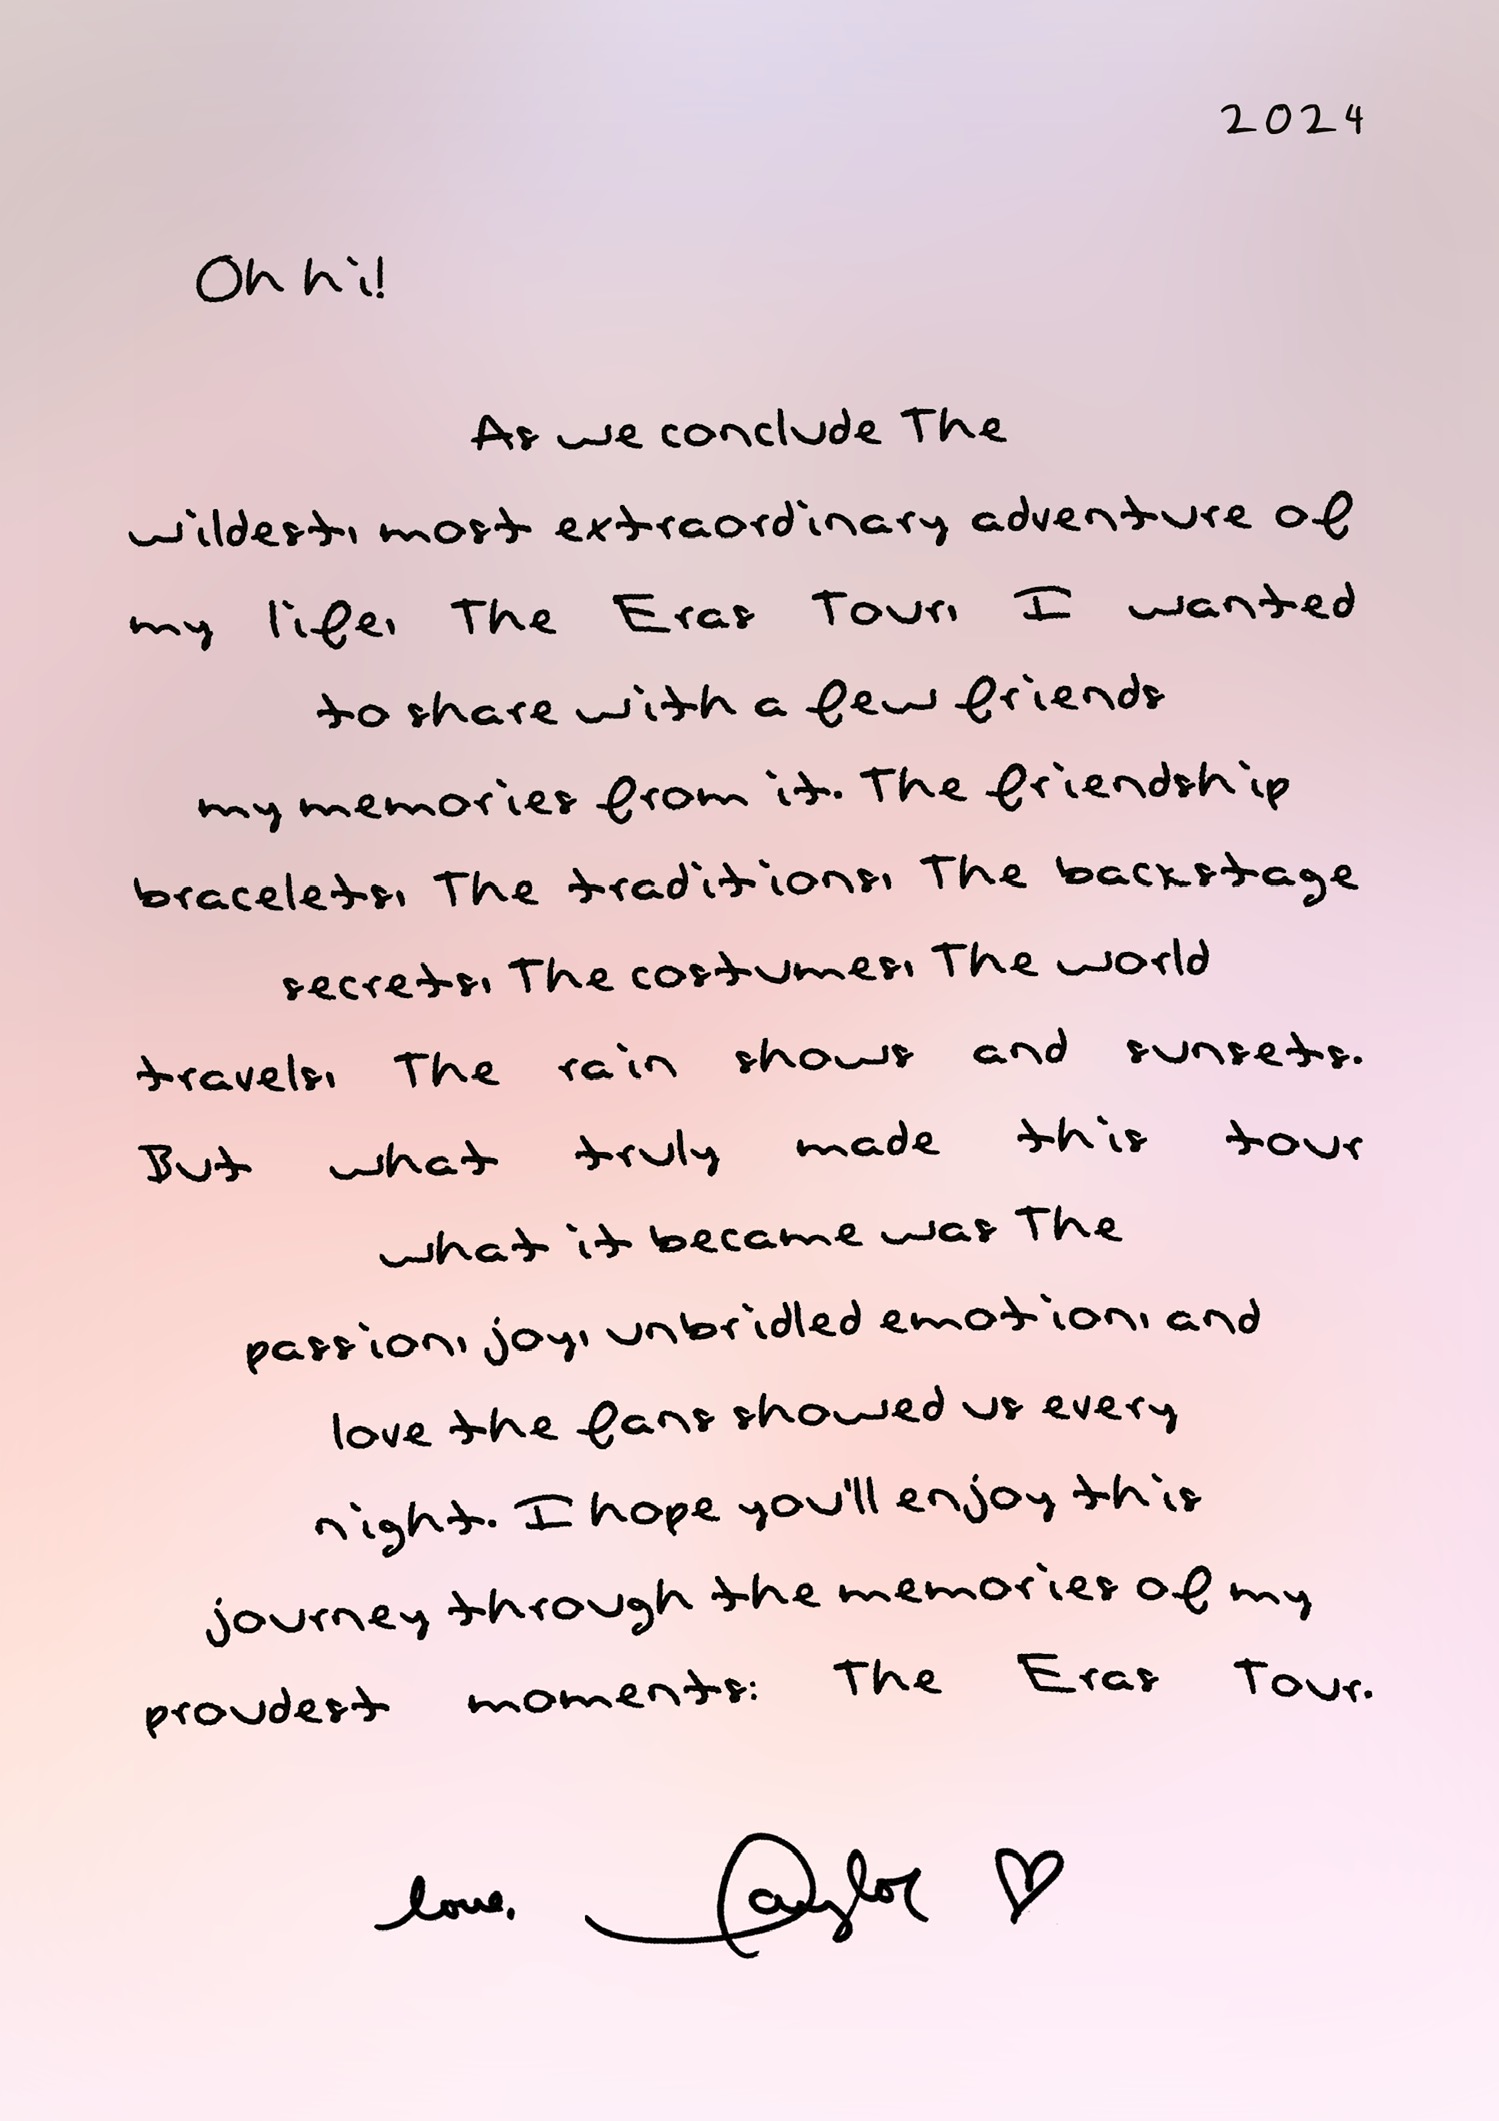 2024
Oh hi!
As we conclude The
wildest, most extraordinary adventure of
my life, The Eras Tour, I wanted
to share with a few friends
my memories from it. The friendship
bracelets, The traditions, The backstage
secrets, The costumes, The world
travels, The rain shows and sunsets.
But what truly made this tour
what it became was The
passion, joy, unbridled emotion, and
love the fans showed us every
night. I hope you'll enjoy this
journey through the memories of my
proudest moments: The Eras Tour.
love, Taylor ♡